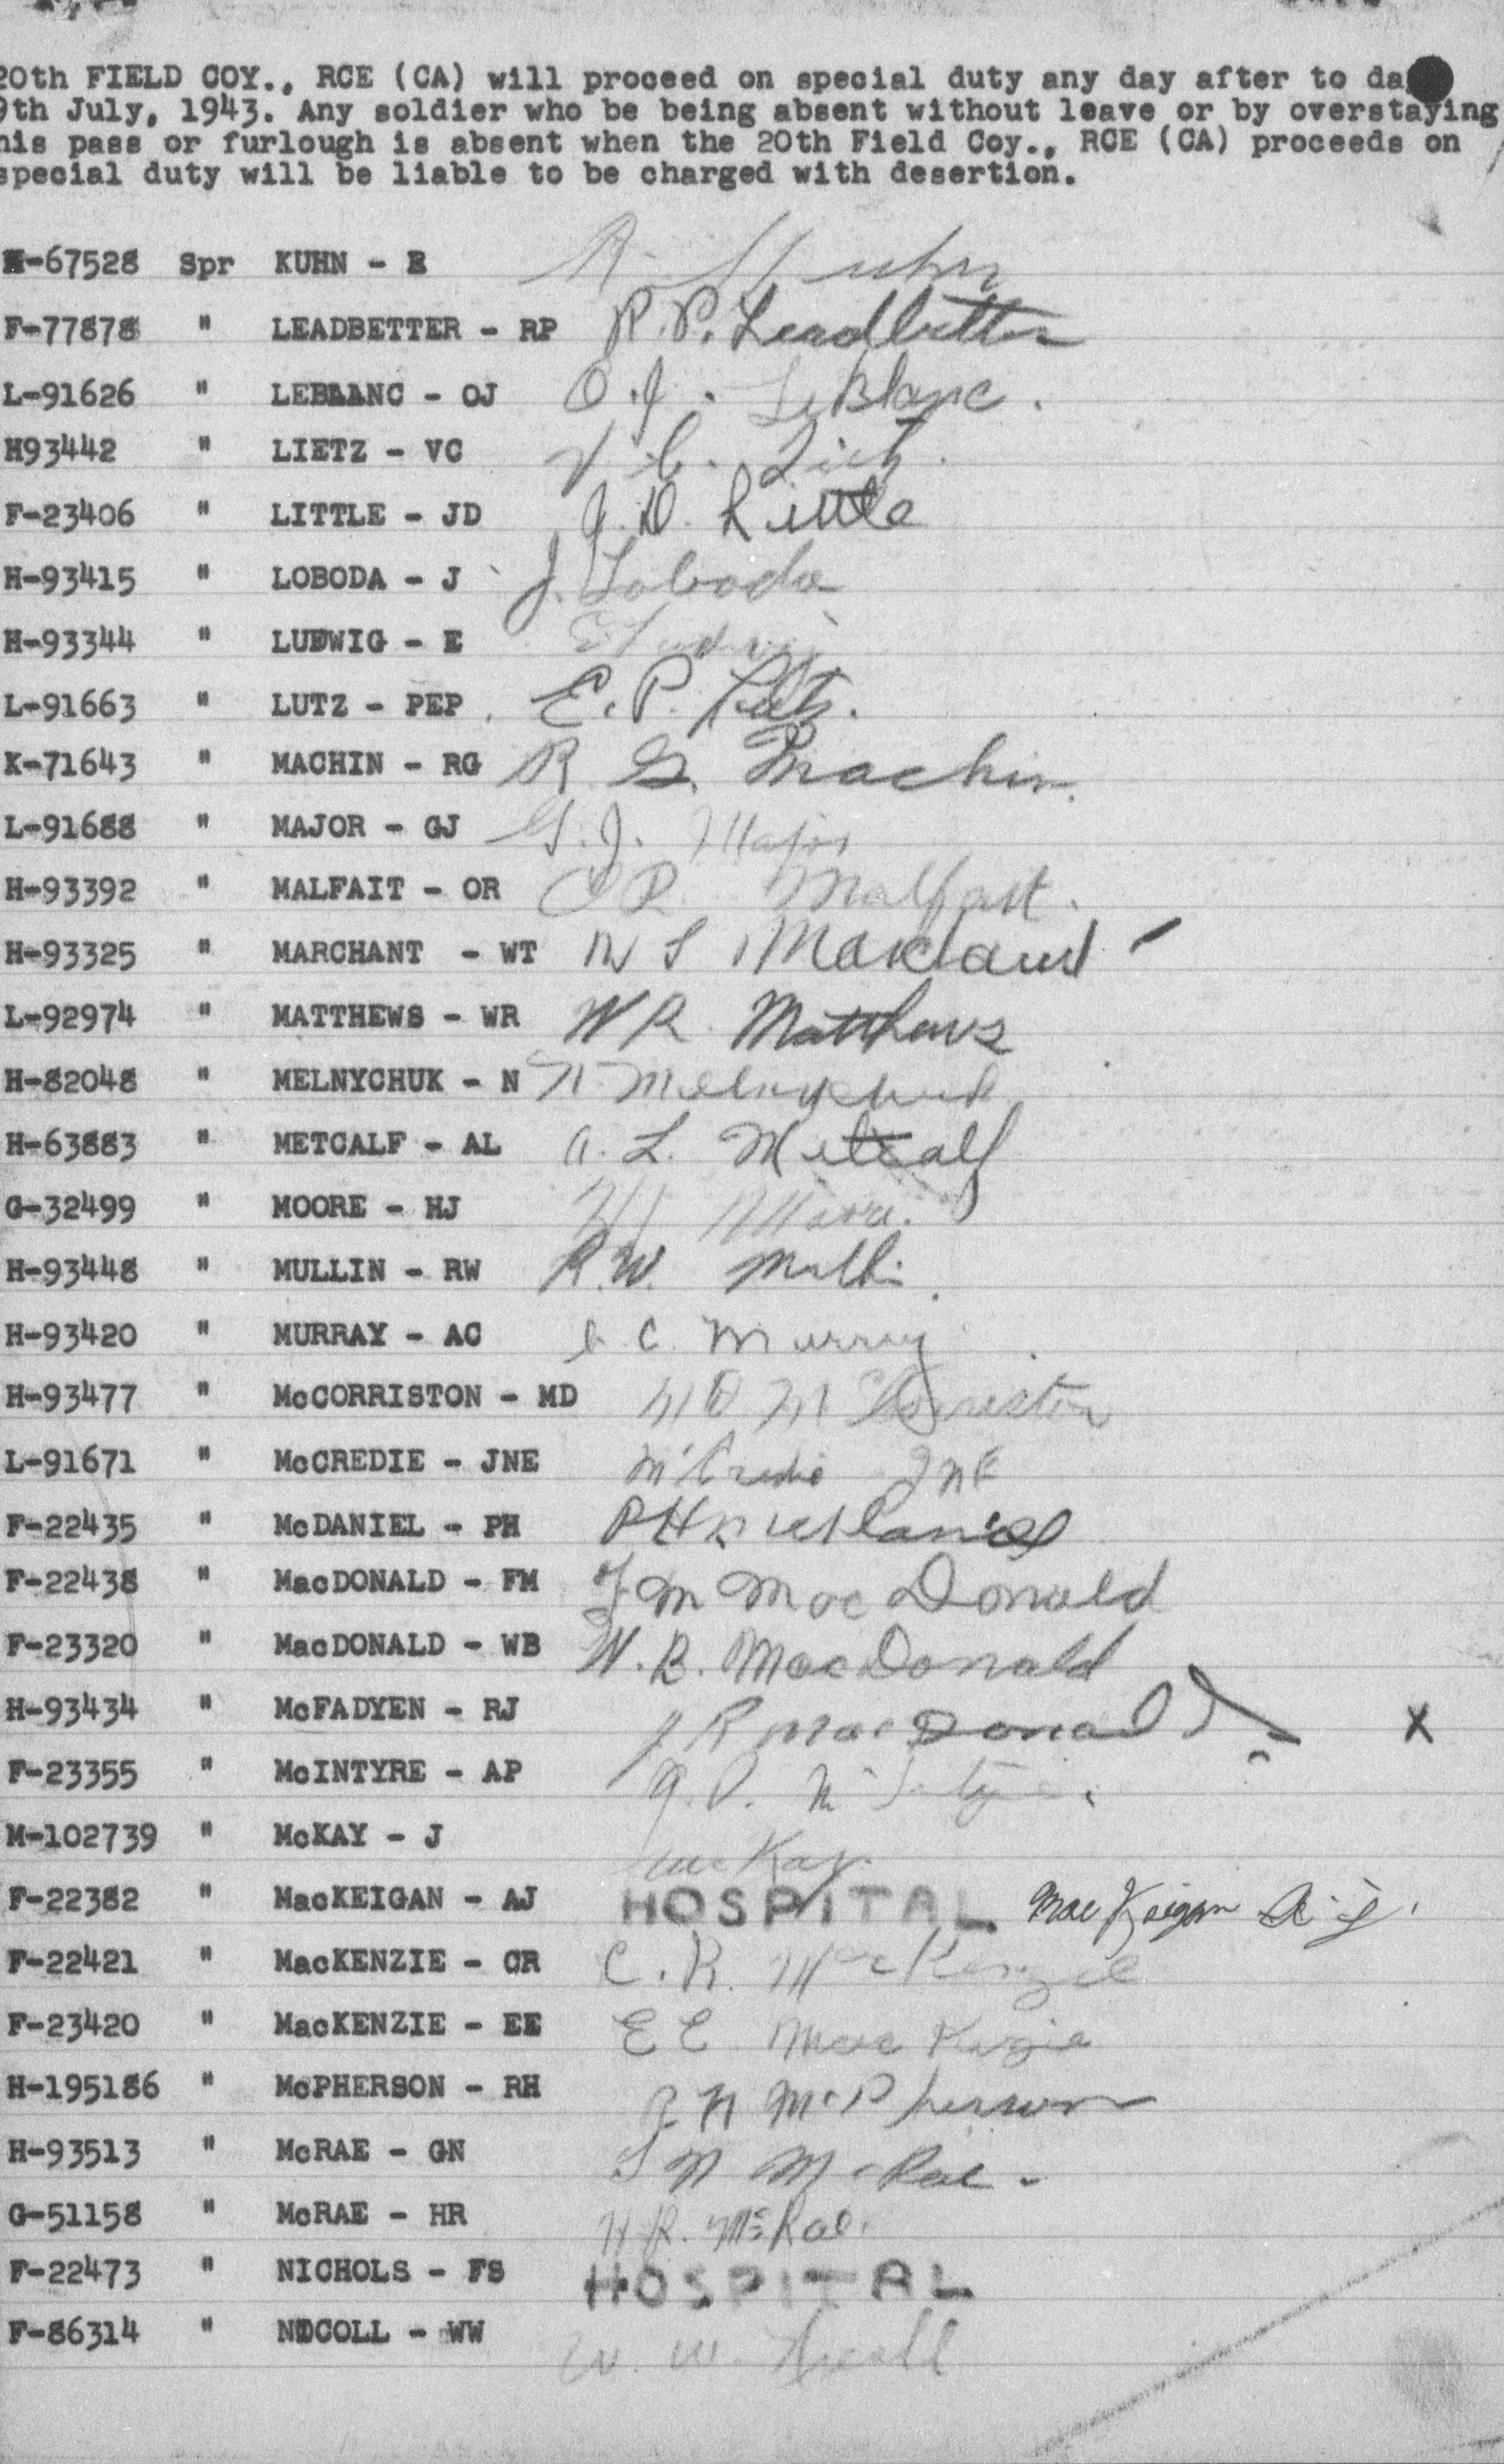 20th FIELD COY., RCE (CA) will proceed on special duty any day after to da
9th July, 1943. Any soldier who be being absent without leave or by overstaying
his pass or furlough is absent when the 20th Field Coy., RCE (CA) proceeds on
special duty will be liable to be charged with desertion.
-67528 Spr KUHN - R Kuhn
F-77878 " LEADBETTER - RP R.P. Leadbetter
L-91626 " LEBLANC - OJ O.J. LeBlanc.
H93442 " LIETZ - VC V.C. Lietz.
F-23406 " LITTLE - JD J.D. Little
H-93415 " LOBODA - J J. Loboda
H-93344 " LUDWIG - E E Ludwig
L-91663 " LUTZ - PEP E.P. Lutz.
K-71643 " MACHIN - RG R G. Machin.
L-91688 " MAJOR - GJ G.J. Major
H-93392 " MALFAIT - OR O R. Malfait.
H-93325 " MARCHANT - WT W T Marchant
L-92974 " MATTHEWS - WR W R Matthews
H-82048 " MELNYCHUK - N N. Melnychuk
H-63883 " METCALF - AL A. L. Metcalf
G-32499 " MOORE - HJ HJ Moore.
H-93448 " MULLIN - RW R.W. Mullin
H-93420 " MURRAY - AC A. C. Murray
H-93477 " McCORRISTON - MD M D McCorriston
L-91671 " McCREDIE - JNE McCredie JNE
F-22435 " McDANIEL - PH P H McDaniel
F-22438 " MacDONALD - FM F M MacDonald
F-23320 " MacDONALD - WB W.B. MacDonald
H-93434 " McFADYEN - RJ J R MacDonald X
F-23355 " McINTYRE - AP A.P. McIntyre.
M-102739 " McKAY - J McKay.
F-22382 " MacKEIGAN - AJ HOSPITAL MacKeigan A.J.
F-22421 " MacKENZIE - CR C.R. MacKenzie
F-23420 " MacKENZIE - EE E E MacKenzie
H-195186 " McPHERSON - RH R H McPherson
H-93513 " McRAE - GN G N McRae -
G-51158 " McRAE - HR H R. McRae.
F-22473 " NICHOLS - FS HOSPITAL
F-86314 " NICOLL - WW W. W. Nicoll